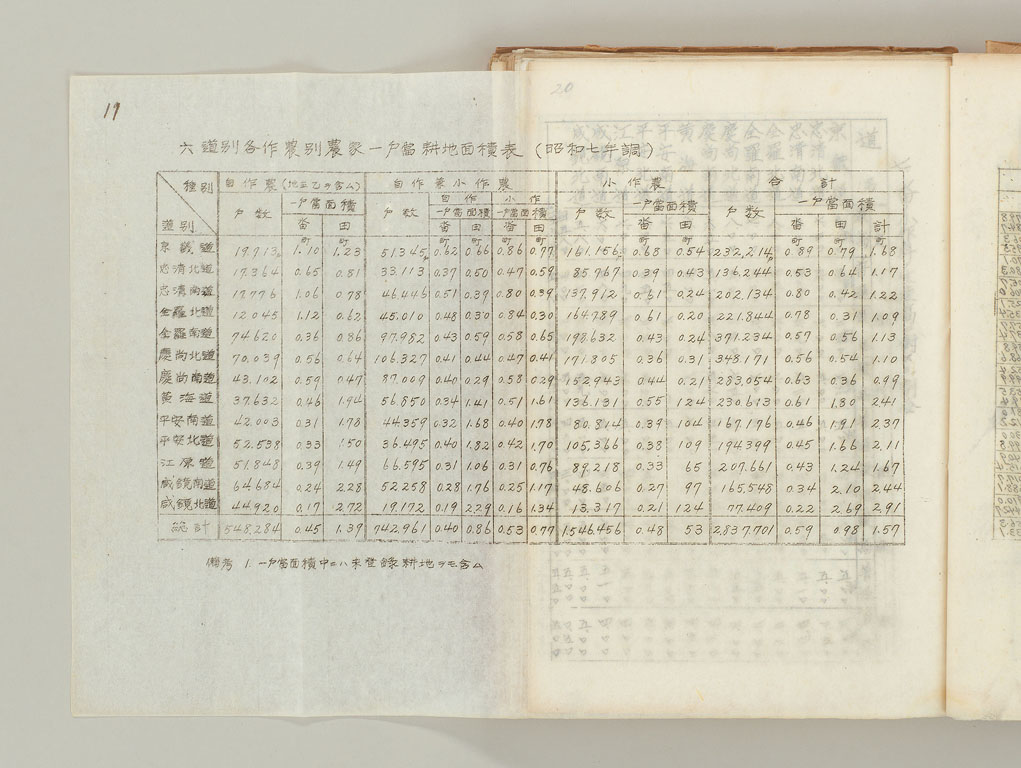 19
20
六 道別各作農別農家一戸當耕地面積表 (昭和七年調)
種別 自作農(地主乙ヲ含ム) 自作兼小作農 小作農 合計
自作 小作
戸数 一戸當面積 戸数 一戸當面積 一戸當面積 戸数 一戸當面積 戸数 一戸當面積
道別 畓 田 畓 田 畓 田 畓 田 畓 田 計
町 町 町 町 町 町 町 町 町 町
京畿道 19.713 1.10 1.23 51.345 0.62 0.66 0.86 0.77 161.156 0.68 0.54 232.214 0.89 0.79 1.68
忠清北道 17.364 0.65 0.81 33.113 0.37 0.50 0.47 0.59 85.767 0.39 0.43 136.244 0.53 0.64 1.17
忠清南道 17.776 1.06 0.78 46.446 0.51 0.39 0.80 0.39 137.912 0.61 0.24 202.134 0.80 0.42 1.22
全羅北道 12.045 1.12 0.62 45.010 0.48 0.30 0.84 0.30 164.789 0.61 0.20 221.844 0.78 0.31 1.09
全羅南道 74.620 0.36 0.86 97.982 0.43 0.59 0.58 0.65 198.632 0.43 0.24 371.234 0.57 0.56 1.13
慶尚北道 70.039 0.56 0.64 106.327 0.41 0.44 0.47 0.41 171.805 0.36 0.31 348.171 0.56 0.54 1.10
慶尚南道 43.102 0.59 0.47 87.009 0.40 0.29 0.58 0.29 152.943 0.44 0.21 283.054 0.63 0.36 0.99
黄海道 37.632 0.46 1.94 56.850 0.34 1.41 0.51 1.61 136.131 0.55 124 230.613 0.61 1.80 2.41
平安南道 42.003 0.31 1.78 44.359 0.32 1.68 0.40 1.78 80.814 0.39 104 167.176 0.46 1.91 2.37
平安北道 52.538 0.33 1.50 36.495 0.40 1.82 0.42 1.70 105.366 0.38 109 194.399 0.45 1.66 2.11
江原道 51.848 0.39 1.49 66.595 0.31 1.06 0.31 0.76 89.218 0.33 65 207.661 0.43 1.24 1.67
咸鏡南道 64.684 0.24 2.28 52.258 0.28 1.76 0.25 1.17 48.606 0.27 97 165.548 0.34 2.10 2.44
咸鏡北道 44.920 0.17 2.72 19.172 0.19 2.29 0.16 1.34 13.317 0.21 124 77.409 0.22 2.69 2.91
総計 548.284 0.45 1.39 742.961 0.40 0.86 0.53 0.77 1.546.456 0.48 53 2.837.701 0.59 0.98 1.57
備考 1. 一戸當面積中ニハ未登録耕地ヲモ含ム